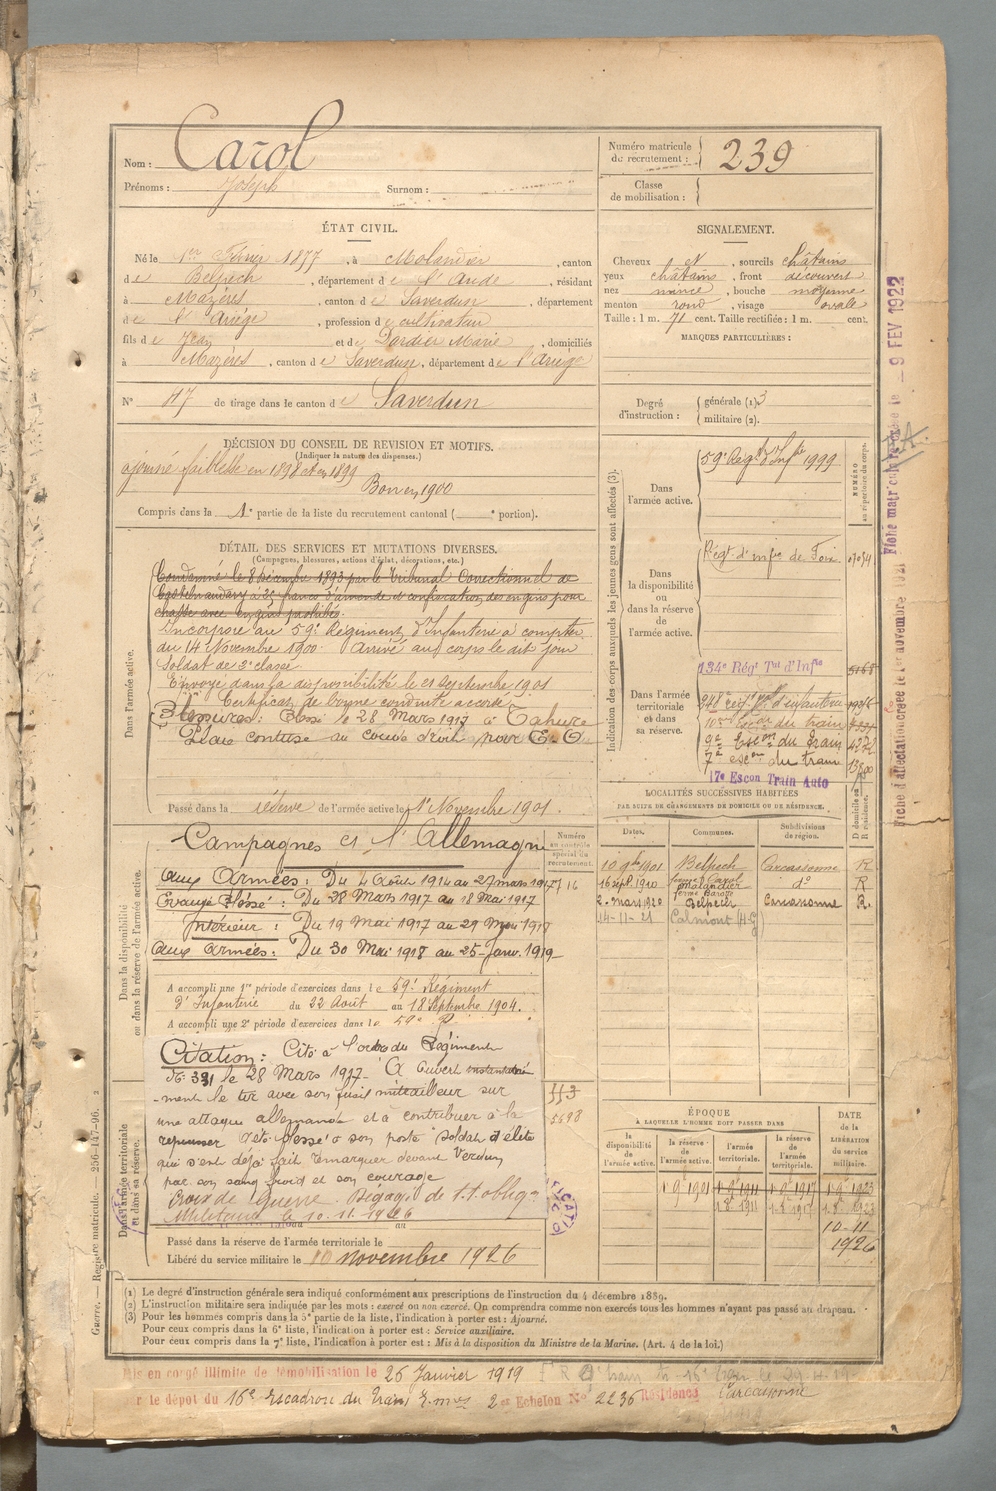 Nom : Carol
Prénoms : Joseph Surnom :
Numéro matricule du recrutement : 239
Classe de mobilisation :
ÉTAT CIVIL.
Né le 1er Février 1877, à Molandier, canton
de Belpech, département de l'Aude, résidant
à Mazères, canton de Saverdun, département
de l'Ariége, profession de cultivateur
fils de Jean et de Dardier Marie, domiciliés
à Mazères, canton de Saverdun, département de l'Ariége
N° 47 de tirage dans le canton de Saverdun
SIGNALEMENT.
Cheveux et, sourcils châtains
yeux châtains, front découvert
nez mince, bouche moyenne
menton rond, visage ovale
Taille : 1 m. 71 cent. Taille rectifiée : 1 m. cent.
MARQUES PARTICULIÈRES :
Degré d'instruction : générale (1). 3
militaire (2).
DÉCISION DU CONSEIL DE REVISION ET MOTIFS.
(Indiquer la nature des dispenses.)
ajourné faiblesse en 1898 et en 1899
Bon en 1900
Compris dans la 1e partie de la liste du recrutement cantonal ( e portion).
DÉTAIL DES SERVICES ET MUTATIONS DIVERSES.
(Campagnes, blessures, actions d'éclat, décorations, etc.)
Dans l'armée active.
Condamné le 8 décembre 1893 par le Tribunal Correctionnel de
Castelnaudary à 25 francs d'amende et confiscation des engins pour
chasse avec engins prohibés.
Incorporé au 59e Régiment d'Infanterie à compter
du 14 Novembre 1900. Arrivé au corps le dit jour
Soldat de 2e classe.
Envoyé dans la disponibilité le 21 Septembre 1901
Certificat de bonne conduite accordé
Blessures : Blessé le 28 Mars 1917 à Tahure
Plaie contuse au coude droit, pour E. O.
Passé dans la réserve de l'armée active le 1er Novembre 1901.
Indication des corps auxquels les jeunes gens sont affectés (3).
NUMÉRO au répertoire du corps.
Dans l'armée active.
59e Régt d'Infie 1999
Dans la disponibilité ou dans la réserve de l'armée active.
Régt. d'infie de Foix
Dans l'armée territoriale et dans sa réserve.
134e Régt Tal d'Infie 5168
248e régt d'infanterie
10me Escon du train
9e Escon du Train
7e escon du train
17e Escon Train Auto
LOCALITÉS SUCCESSIVES HABITÉES
PAR SUITE DE CHANGEMENTS DE DOMICILE OU DE RÉSIDENCE.
D domicile ou R résidence.
Dates. Communes. Subdivisions de région.
10 9bre 1901 Belpech Carcassonne R
16 sept. 1910 Molandier do R
2. mars 1920 Belpech Carcassonne R.
14-11-21 Calmont (H-G)
Dans la disponibilité ou dans la réserve de l'armée active.
Numéro au contrôle spécial du recrutement.
Campagnes et l'Allemagne
Aux Armées : Du 4 Août 1914 au 27 mars 1917
Evacué Blessé : Du 28 Mars 1917 au 18 Mai 1917
Intérieur : Du 19 Mai 1917 au 29 Mai 1918
Aux Armées : Du 30 Mai 1918 au 25 Janv. 1919
A accompli une 1re période d'exercices dans le 59e Régiment
d'Infanterie du 22 Août au 18 Septembre 1904.
A accompli une 2e période d'exercices dans le 59e R
Dans l'armée territoriale et dans sa réserve.
Citation : Cité à l'ordre du Régiment
No 391 le 28 Mars 1917 - A ouvert instantané
-ment le tir avec son fusil mitrailleur sur
une attaque allemande et a contribuer à la
repousser. A été blessé à son poste soldat d'élite
qui s'est déjà fait remarquer devant Verdun
par son sang froid et son courage
Croix de guerre. Dégagé de tt obligon
Militaire le 10.11.1926
113
5698
Passé dans la réserve de l'armée territoriale le
Libéré du service militaire le 10 novembre 1926
ÉPOQUE
À LAQUELLE L'HOMME DOIT PASSER DANS
la disponibilité de l'armée active. la réserve de l'armée active. l'armée territoriale. la réserve de l'armée territoriale. DATE de la LIBÉRATION du service militaire.
1 9 1901 1 9 1911 1 9 1917 1 9 1923
1 8 1911 1 8 1917 1 8 1923
10-11
1926
(1) Le degré d'instruction générale sera indiqué conformément aux prescriptions de l'instruction du 4 décembre 1889.
(2) L'instruction militaire sera indiquée par les mots : exercé ou non exercé. On comprendra comme non exercés tous les hommes n'ayant pas passé au drapeau.
(3) Pour les hommes compris dans la 5e partie de la liste, l'indication à porter est : Ajourné.
Pour ceux compris dans la 6e liste, l'indication à porter est : Service auxiliaire.
Pour ceux compris dans la 7e liste, l'indication à porter est : Mis à la disposition du Ministre de la Marine. (Art. 4 de la loi.)
Mis en congé illimité de démobilisation le 26 Janvier 1919
r le dépôt du 16e Escadron du Train 2er Echelon No 2236 Résidence Carcassonne
Guerre. — Registre matricule. 256-147-96. 2
Fiche d'affectation créée le 1er novembre 1921
Fiche matricule le 9 FEV 1922